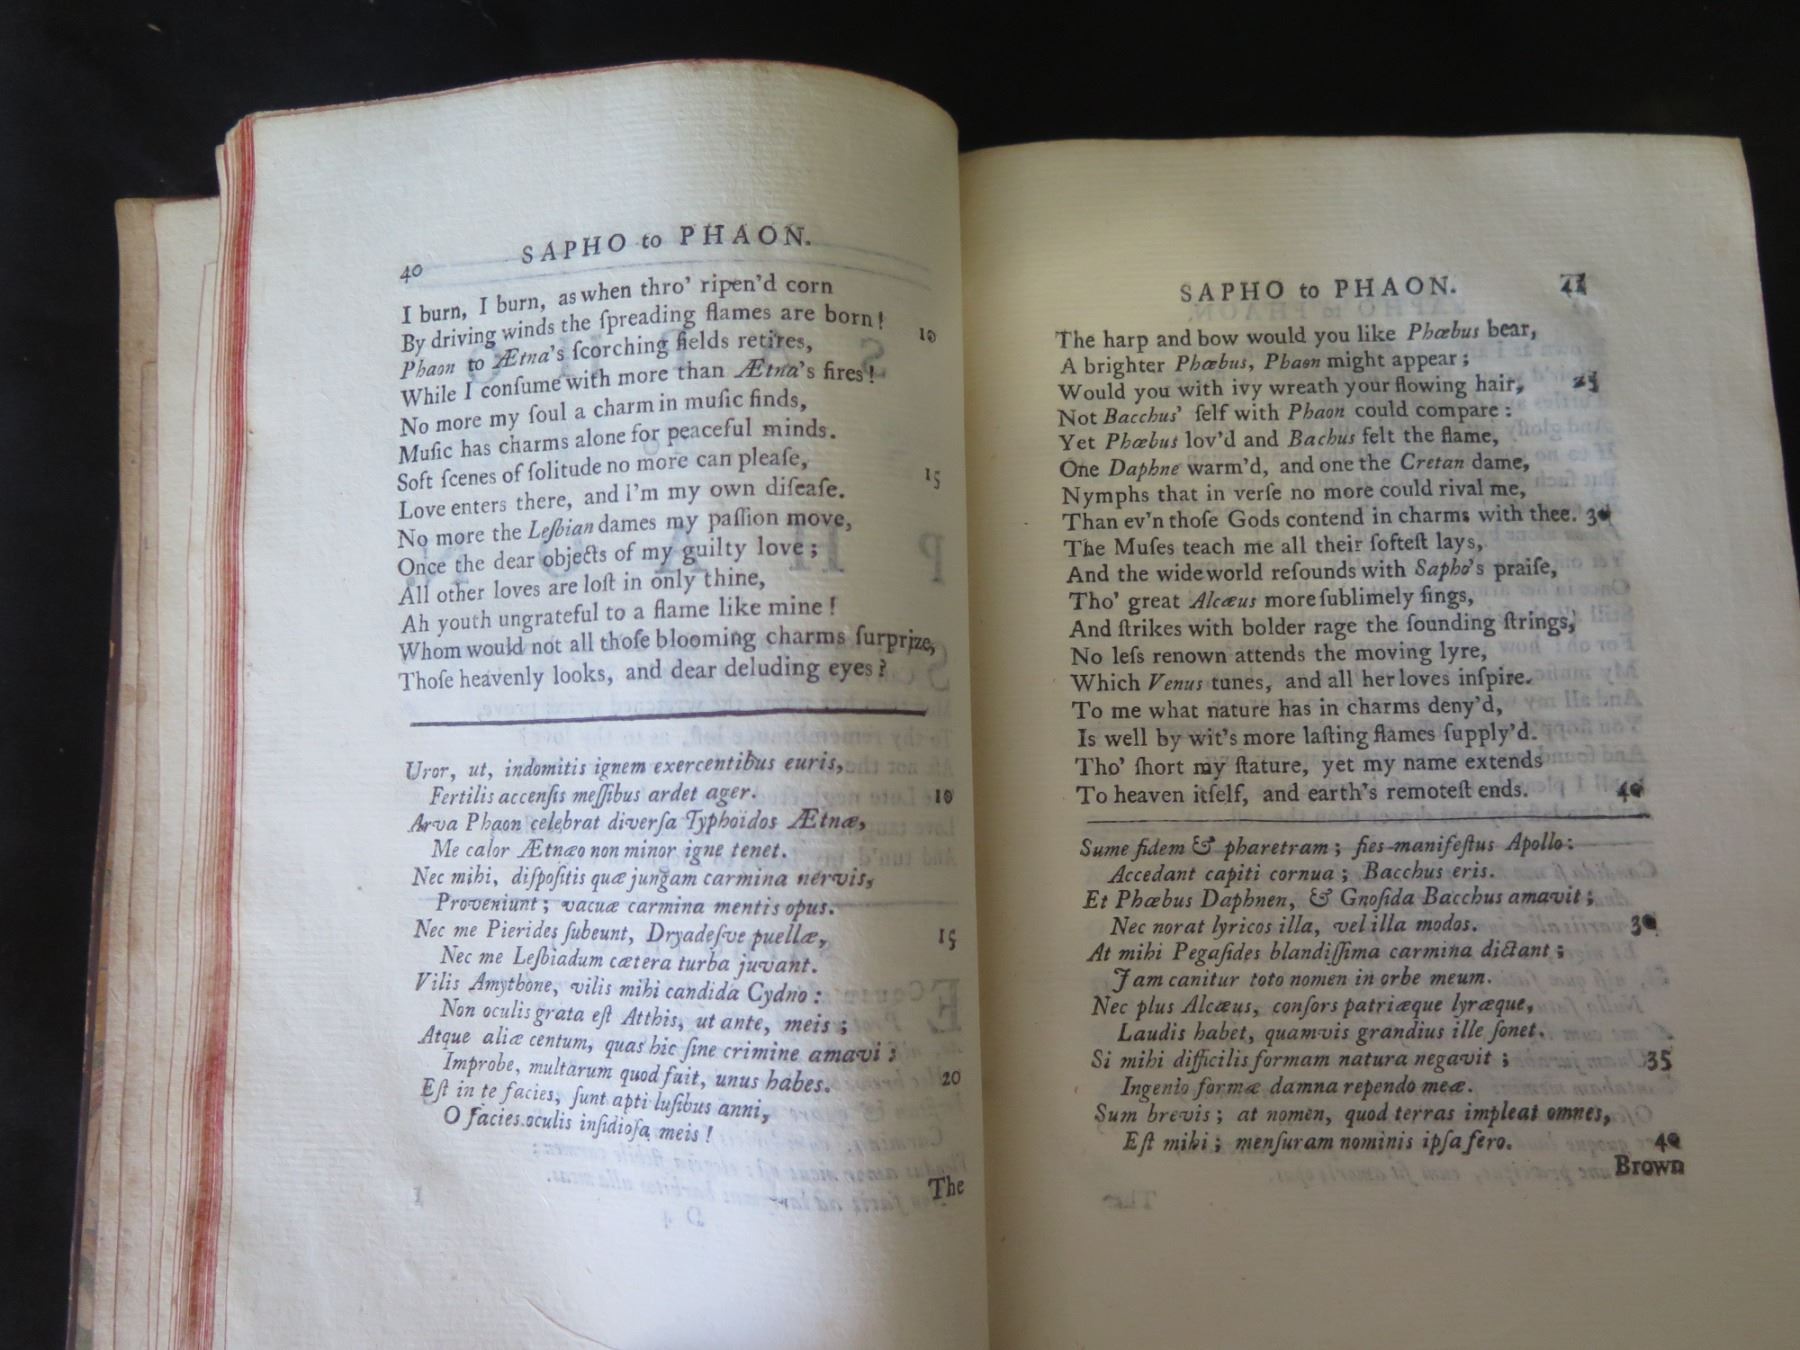 SAPHO to PHAON.
40
I burn, I burn, as when thro' ripen'd corn
By driving winds the ſpreading flames are born!
10
Phaon to Ætna's ſcorching fields retires,
While I conſume with more than Ætna's fires!
No more my ſoul a charm in muſic finds,
Muſic has charms alone for peaceful minds.
Soft ſcenes of ſolitude no more can pleaſe,
15
Love enters there, and I'm my own diſeaſe.
No more the Leſbian dames my paſſion move,
Once the dear objects of my guilty love;
All other loves are loſt in only thine,
Ah youth ungrateful to a flame like mine!
Whom would not all thoſe blooming charms ſurprize,
Thoſe heavenly looks, and dear deluding eyes?
Uror, ut, indomitis ignem exercentibus euris,
Fertilis accenſis meſſibus ardet ager.
10
Arva Phaon celebrat diverſa Typhoidos Ætnæ,
Me calor Ætnæo non minor igne tenet.
Nec mihi, diſpoſitis quæ jungam carmina nervis,
Proveniunt; vacuæ carmina mentis opus.
Nec me Pierides ſubeunt, Dryadeſve puellæ,
15
Nec me Leſbiadum cætera turba juvant.
Vilis Amythone, vilis mihi candida Cydno:
Non oculis grata eſt Atthis, ut ante, meis;
Atque aliæ centum, quas hic ſine crimine amavi:
Improbe, multarum quod fuit, unus habes.
20
Eſt in te facies, ſunt apti luſibus anni,
O facies oculis inſidioſa meis!
The
SAPHO to PHAON.
The harp and bow would you like Phœbus bear,
A brighter Phœbus, Phaon might appear;
Would you with ivy wreath your flowing hair,
25
Not Bacchus' ſelf with Phaon could compare:
Yet Phœbus lov'd and Bachus felt the flame,
One Daphne warm'd, and one the Cretan dame,
Nymphs that in verſe no more could rival me,
Than ev'n thoſe Gods contend in charms with thee. 30
The Muſes teach me all their ſofteſt lays,
And the wide world reſounds with Sapho's praiſe,
Tho' great Alcæus more ſublimely ſings,
And ſtrikes with bolder rage the ſounding ſtrings,
No leſs renown attends the moving lyre,
Which Venus tunes, and all her loves inſpire.
To me what nature has in charms deny'd,
Is well by wit's more laſting flames ſupply'd.
Tho' ſhort my ſtature, yet my name extends
To heaven itſelf, and earth's remoteſt ends. 40
Sume fidem & pharetram; fies manifeſtus Apollo:
Accedant capiti cornua; Bacchus eris.
Et Phœbus Daphnen, & Gnoſida Bacchus amavit;
Nec norat lyricos illa, vel illa modos. 30
At mihi Pegaſides blandiſſima carmina dictant;
Jam canitur toto nomen in orbe meum.
Nec plus Alcæus, conſors patriæque lyræque,
Laudis habet, quamvis grandius ille ſonet.
Si mihi difficilis formam natura negavit; 35
Ingenio formæ damna rependo meæ.
Sum brevis; at nomen, quod terras impleat omnes,
Eſt mihi; menſuram nominis ipſa fero. 40
Brown